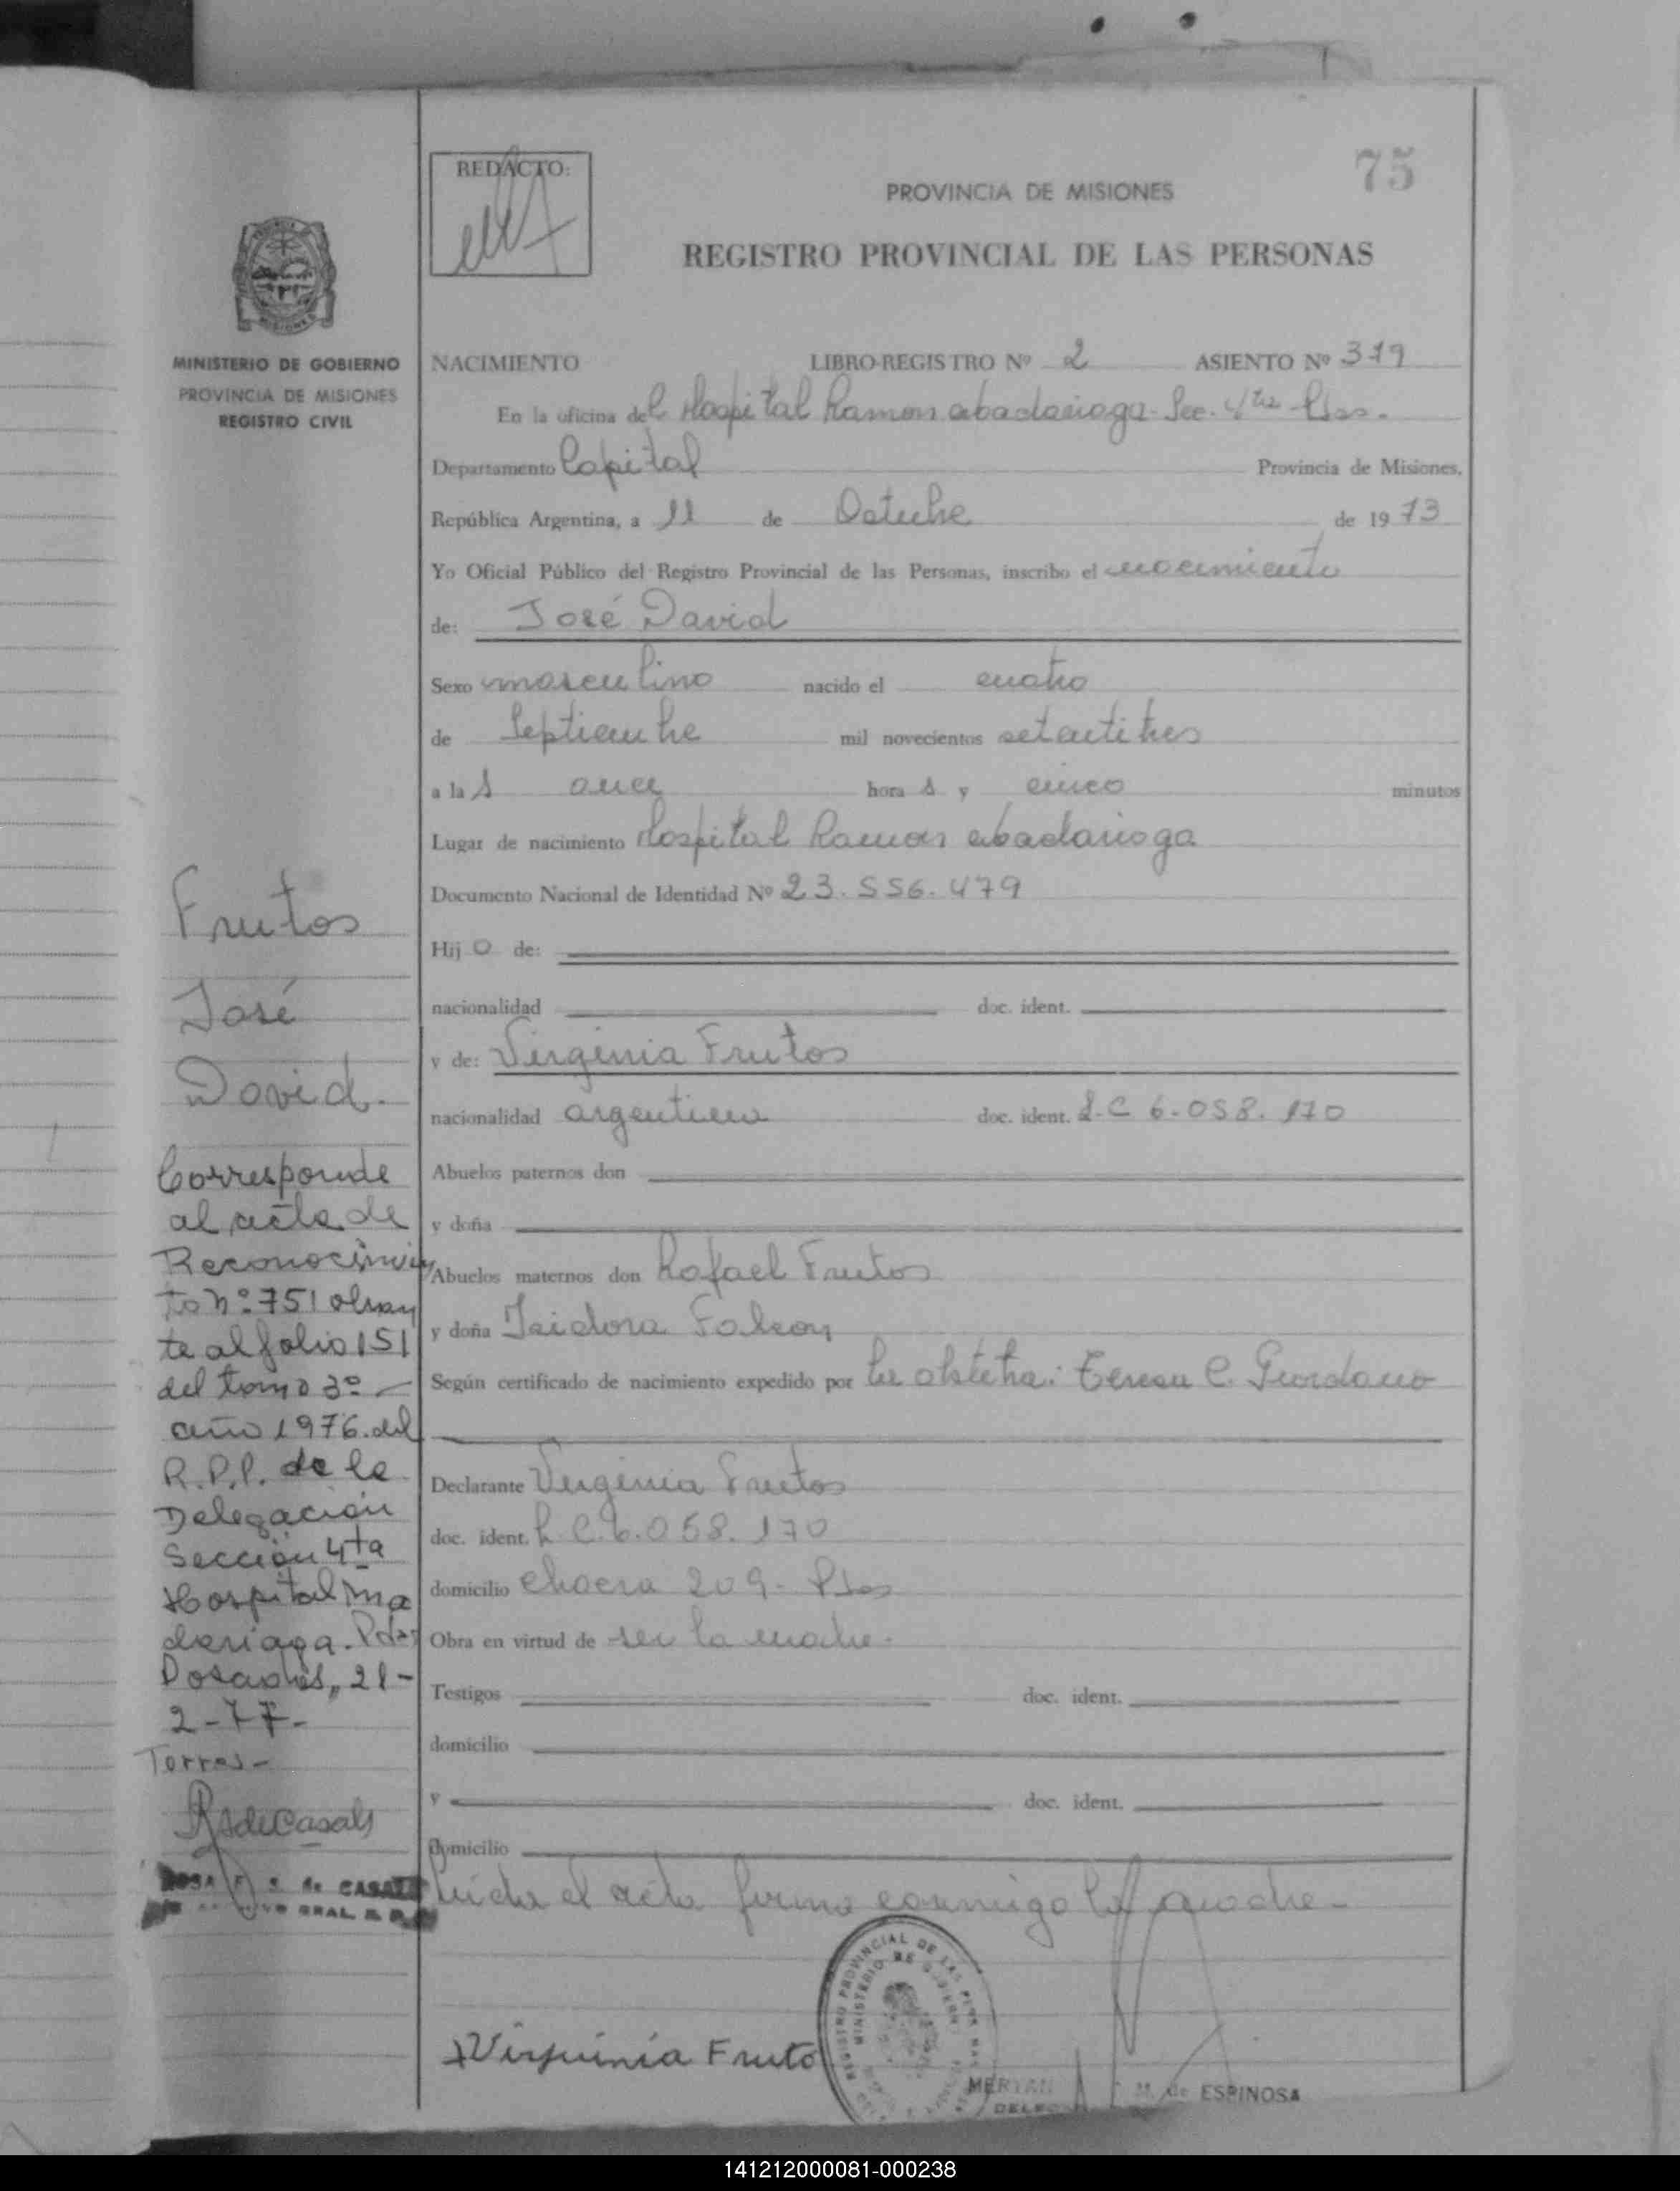 75
REDACTO:
PROVINCIA DE MISIONES
REGISTRO PROVINCIAL DE LAS PERSONAS
MINISTERIO DE GOBIERNO
PROVINCIA DE MISIONES
REGISTRO CIVIL
NACIMIENTO LIBRO-REGISTRO Nº 2 ASIENTO Nº 319
En la oficina del Hospital Ramon abadariaga - Sec. 4ta Pdas.
Departamento Capital Provincia de Misiones,
República Argentina, a 11 de Octubre de 1973
Yo Oficial Público del Registro Provincial de las Personas, inscribo el nacimiento
de: José David
Sexo masculino nacido el cuatro
de Septiembre mil novecientos setentitres
a las once horas y cinco minutos
Lugar de nacimiento Hospital Ramon abadariaga
Documento Nacional de Identidad Nº 23.556.479
Hijo de:
nacionalidad doc. ident.
y de: Virginia Frutos
nacionalidad argentina doc. ident. L.C 6.058.170
Abuelos paternos don
y doña
Abuelos maternos don Rafael Frutos
y doña Isidora Falcon
Según certificado de nacimiento expedido por la obstetra: Teresa C. Giordano
Declarante Virginia Frutos
doc. ident. L.C.6.058.170
domicilio Chacra 209 - Pdas
Obra en virtud de ser la madre.
Testigos doc. ident.
domicilio
y doc. ident.
domicilio
Leída el acta firma conmigo la madre -
Virjuinia Fruto
REGISTRO PROVINCIAL DE LAS PERSONAS
MINISTERIO DE GOBIERNO
MERYAN M. de ESPINOSA
Frutos
José
David.
Corresponde
al acta de
Reconocimien
to nº 751 obran
te al folio 151
del tomo 3º -
año 1976. del
R.P.P. de la
Delegación
Sección 4ta
Hospital Ma
dariaga. Pdas
Posadas, 21-
2-77-
Torres -
RsdeCasals
ROSA F. S. de CASALS
GRAL
141212000081-000238